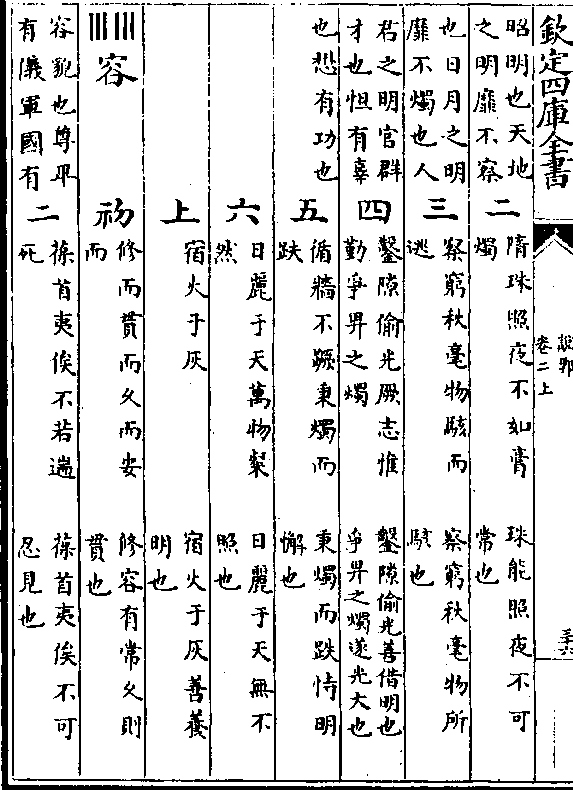 欽定四庫全書
說郛
卷二上
三六
昭明也天地
之明靡不察
二
隋珠照夜不如膏
燭
珠能照夜不可
常也
也日月之明
靡不燭也人
三
察窮秋毫物駭而
逃
察窮秋毫物所
駭也
君之明官群
才也怛有辜
四
鑿隙偷光厥志惟
勤爭畀之燭
鑿隙偷光善借明也
爭畀之燭遂光大也
也恐有功也
五
循牆不蹶秉燭而
跌
秉燭而跌恃明
懈也
六
日麗于天萬物粲
然
日麗于天無不
照也
上
宿火于灰
宿火于灰善養
明也
容
初
修而貫而久而安
而
修容有常久則
貫也
容貌也尊卑
有儀軍國有
二
葆首夷俟不若遄
死
葆首夷俟不可
忍見也